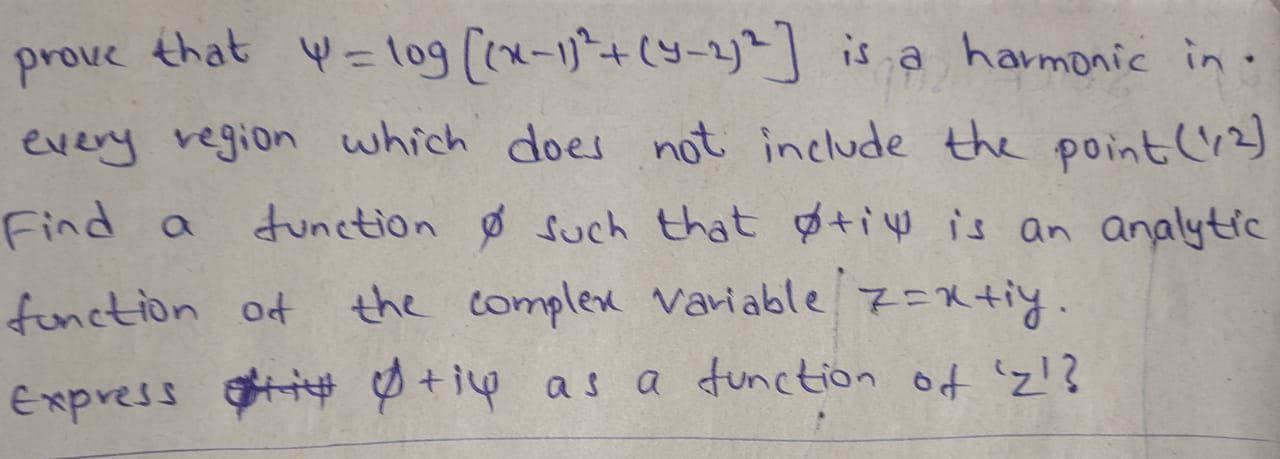 prove that ψ = log [(x-1)² + (y-2)²] is a harmonic in.
every region which does not include the point (1,2)
Find a function ø such that ø+iψ is an analytic
function of the complex variable z = x+iy.
Express ø+iψ as a function of 'z'?